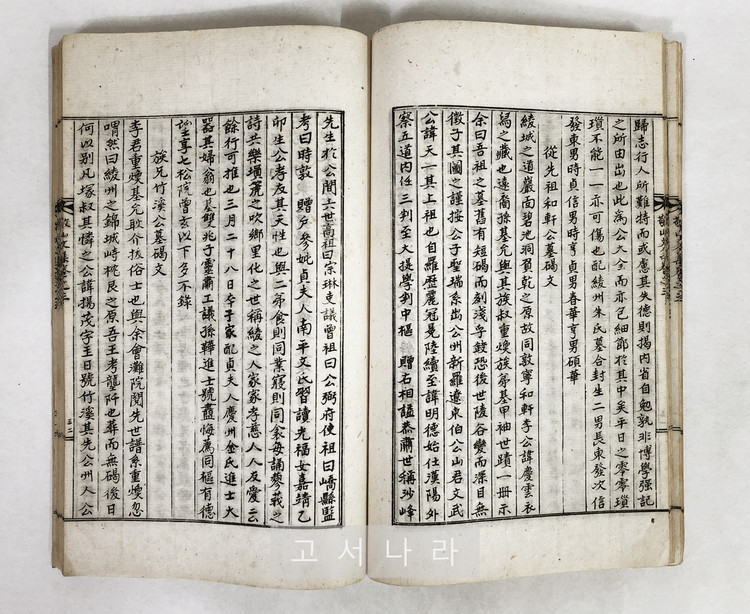 歸志行人所難持而或慮其失德則揚內省自勉孰非博學强記
之所由出也此爲公大全而亦已細節於其中矣平日之零零瑣
瑣不能一一亦可傷也配綾州朱氏墓合封生二男長東發次信
發東男時貞信男時亨貞男春華亨男碩華
從先祖和軒公墓碣文
綾城之道巖面碧池洞負乾之原故同敦寧和軒李公諱慶雲衣
舃之藏也遠裔孫基允與其族叔重煥族弟基甲袖世蹟一冊示
余曰吾祖之墓舊有短碣而刻淺字 恐後世陵谷變而深目無
徵子其圖之謹按公子聖瑞系出公州新羅遼東伯公山君文武
公諱天一其上祖也自羅歷麗冠冕陸續至諱明德始仕漢陽外
察五道內任三判至大提學判中樞 贈右相謚恭肅世稱沙峰
先生於公間六世高祖曰宗琳吏議曾祖曰公弼府使祖曰嶠縣監
考曰時敦 贈戶參妣貞夫人南平文氏習讀光福女嘉靖乙
卯生公孝友其天性也與二弟食則同案寢則同衾每誦蓼莪之
詩共樂壎箎之吹鄉里化之世稱綾之人家家孝慈人人友愛云
餘行可推也三月二十八日卒于家配貞夫人慶州金氏進士大
器其婦翁也墓雙兆子靈肅工議孫鞾進士號 悔薦同樞有德
望享七松院曾玄以下多不錄
族兄竹溪公墓碣文
李君重煥基允敢介拔俗士也與余會灘院閱先世譜系重煥忽
喟然曰綾州之錦城峙桃艮之原吾王考麗阡也尋而無碣後日
何以別凡塚叔其憐之公諱揚茂字圭日號竹溪其先公州人公